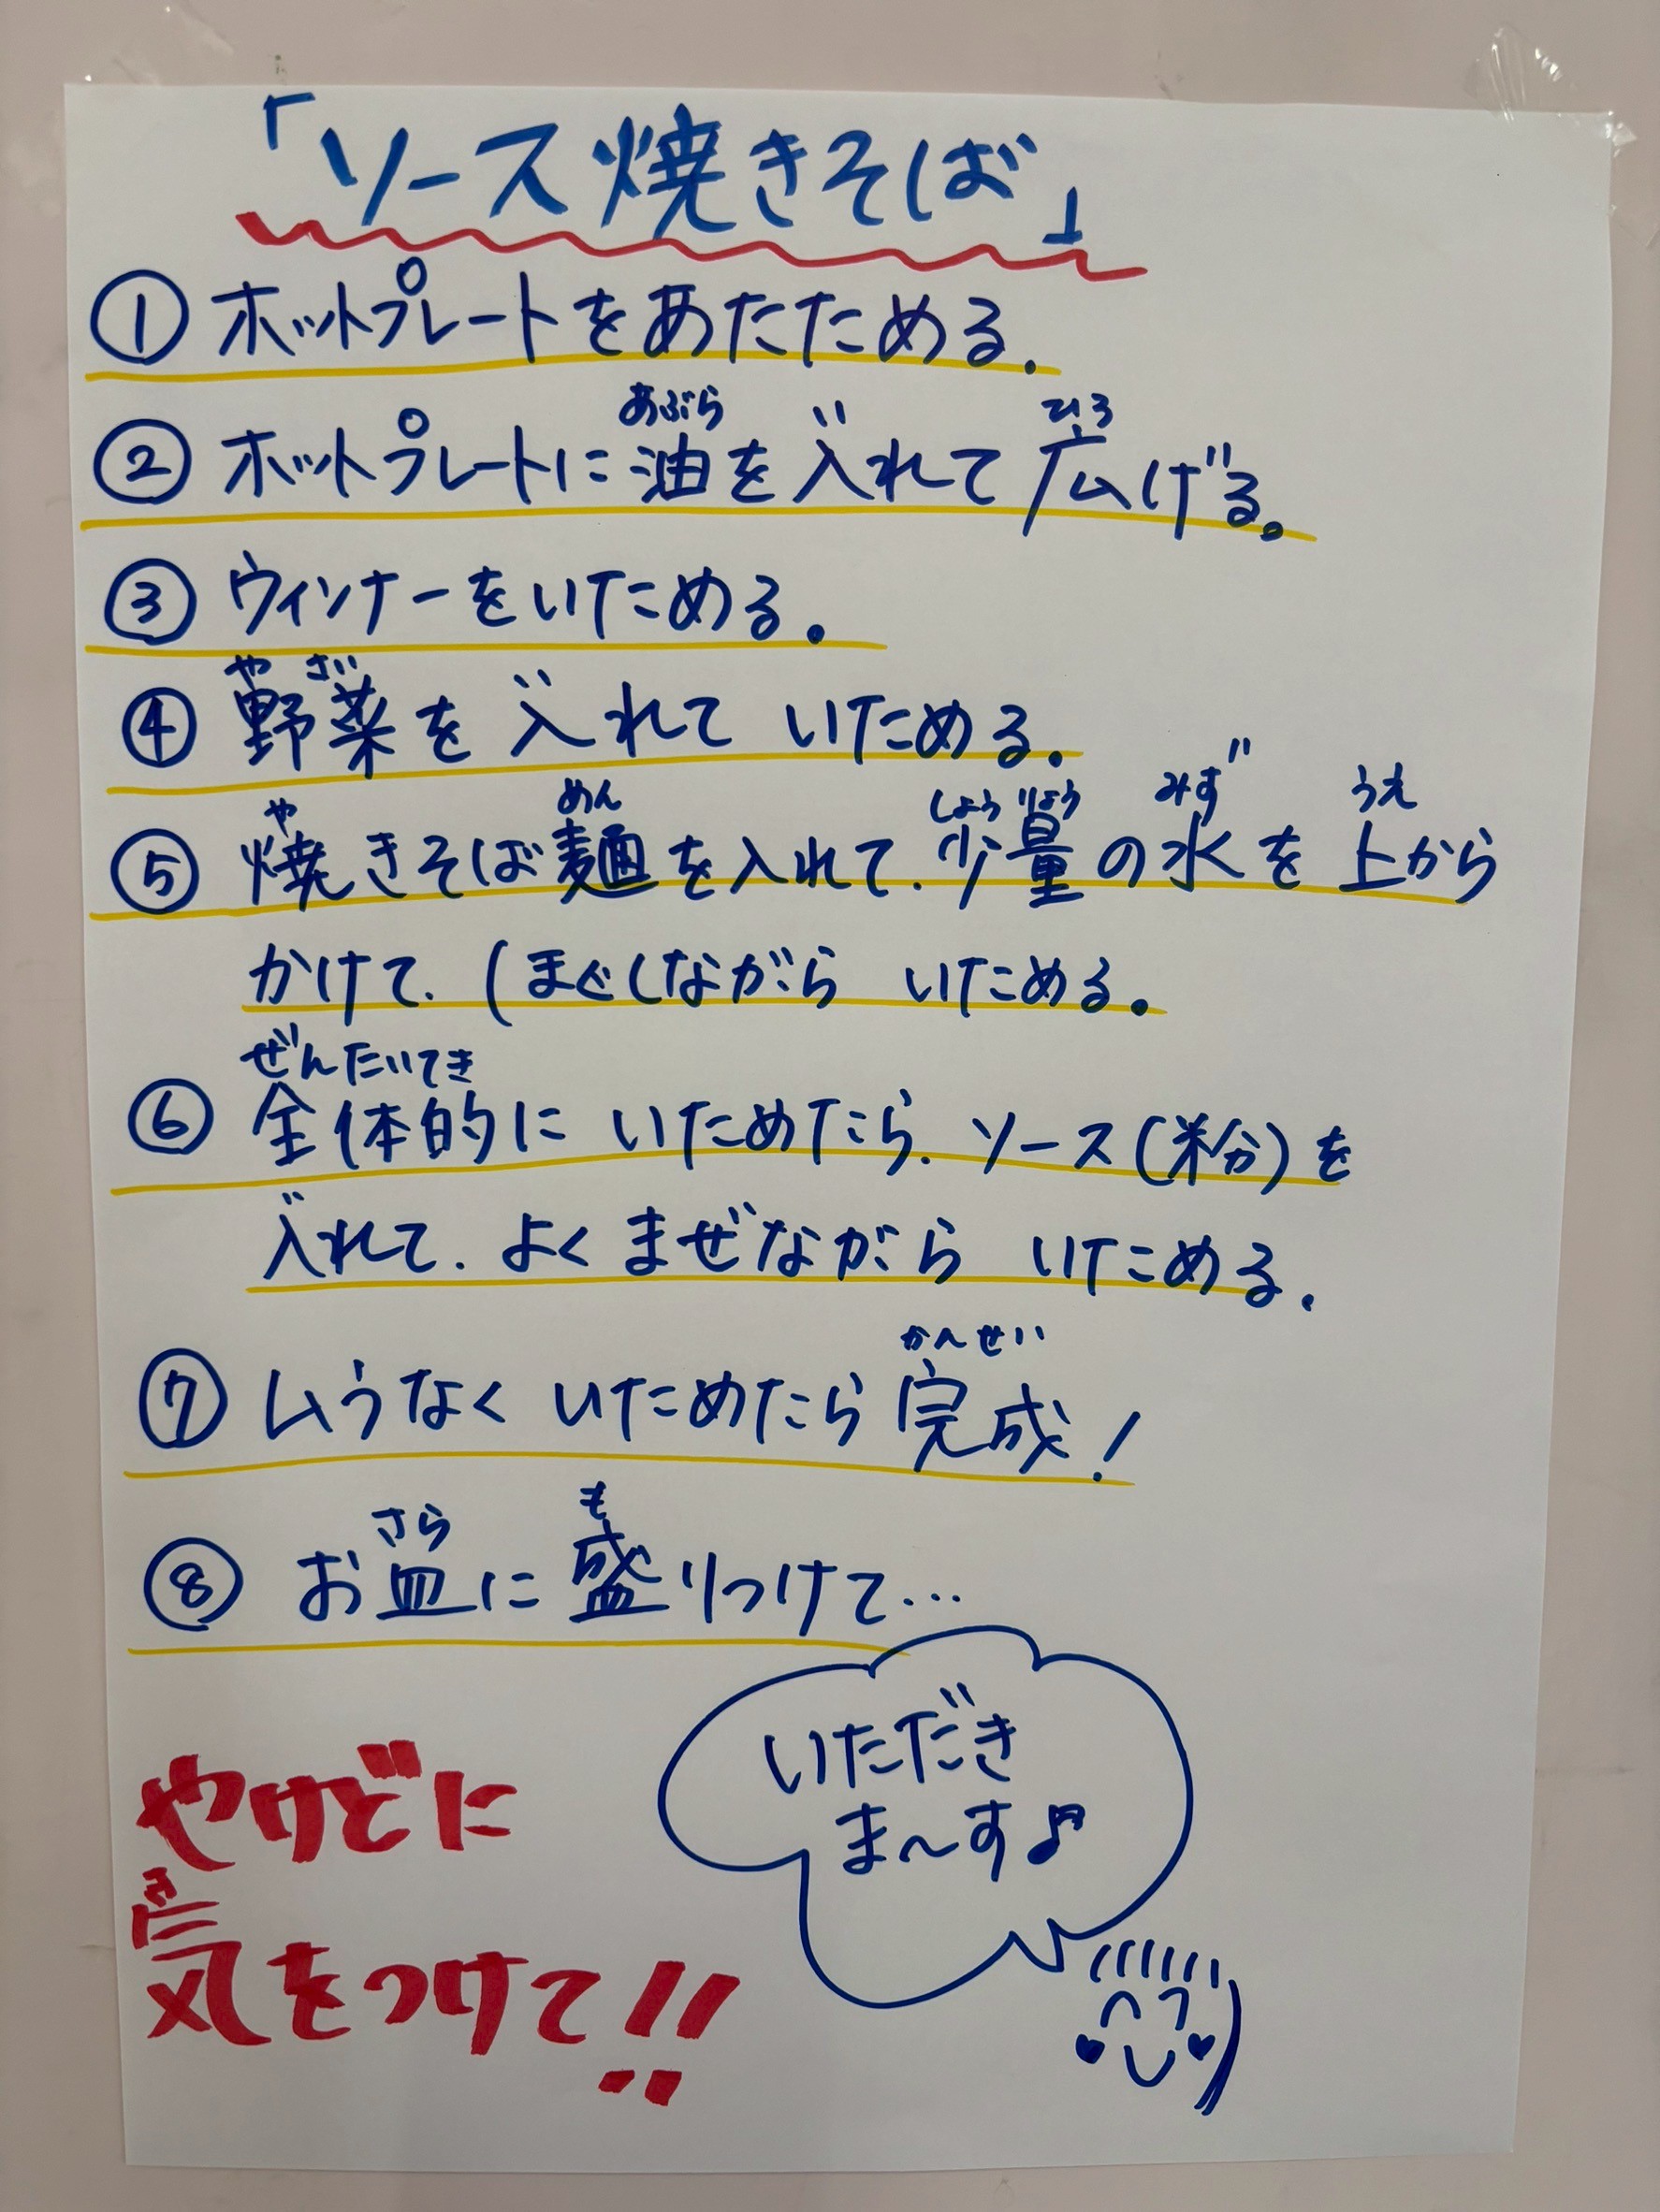 「ソース焼きそば」
① ホットプレートをあたためる。
あぶら い ひろ
② ホットプレートに油を入れて広げる。
③ ウィンナーをいためる。
や さい い
④ 野菜を入れて いためる。
や めん しょうりょう みず うえ
⑤ 焼きそば麺を入れて、少量の水を上から
かけて、ほぐしながら いためる。
ぜんたいてき
⑥ 全体的に いためたら、ソース(粉)を
い
入れて、よくまぜながら いためる。
かんせい
⑦ ムラなく いためたら完成!
さら も
⑧ お皿に盛りつけて…
いただき
ま〜す♪
やけどに
き
気をつけて!!